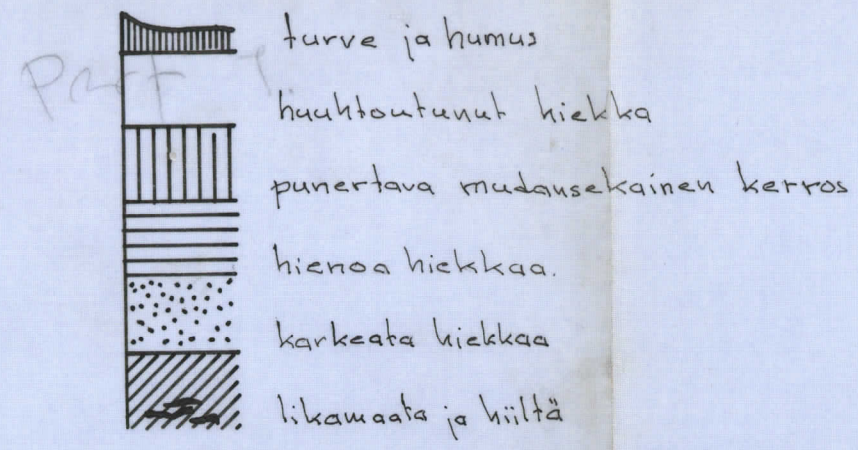 turve ja humus
huuhtoutunut hiekka
punertava mudansekainen kerros
hienoa hiekkaa.
karkeata hiekkaa
likamaata ja hiiltä